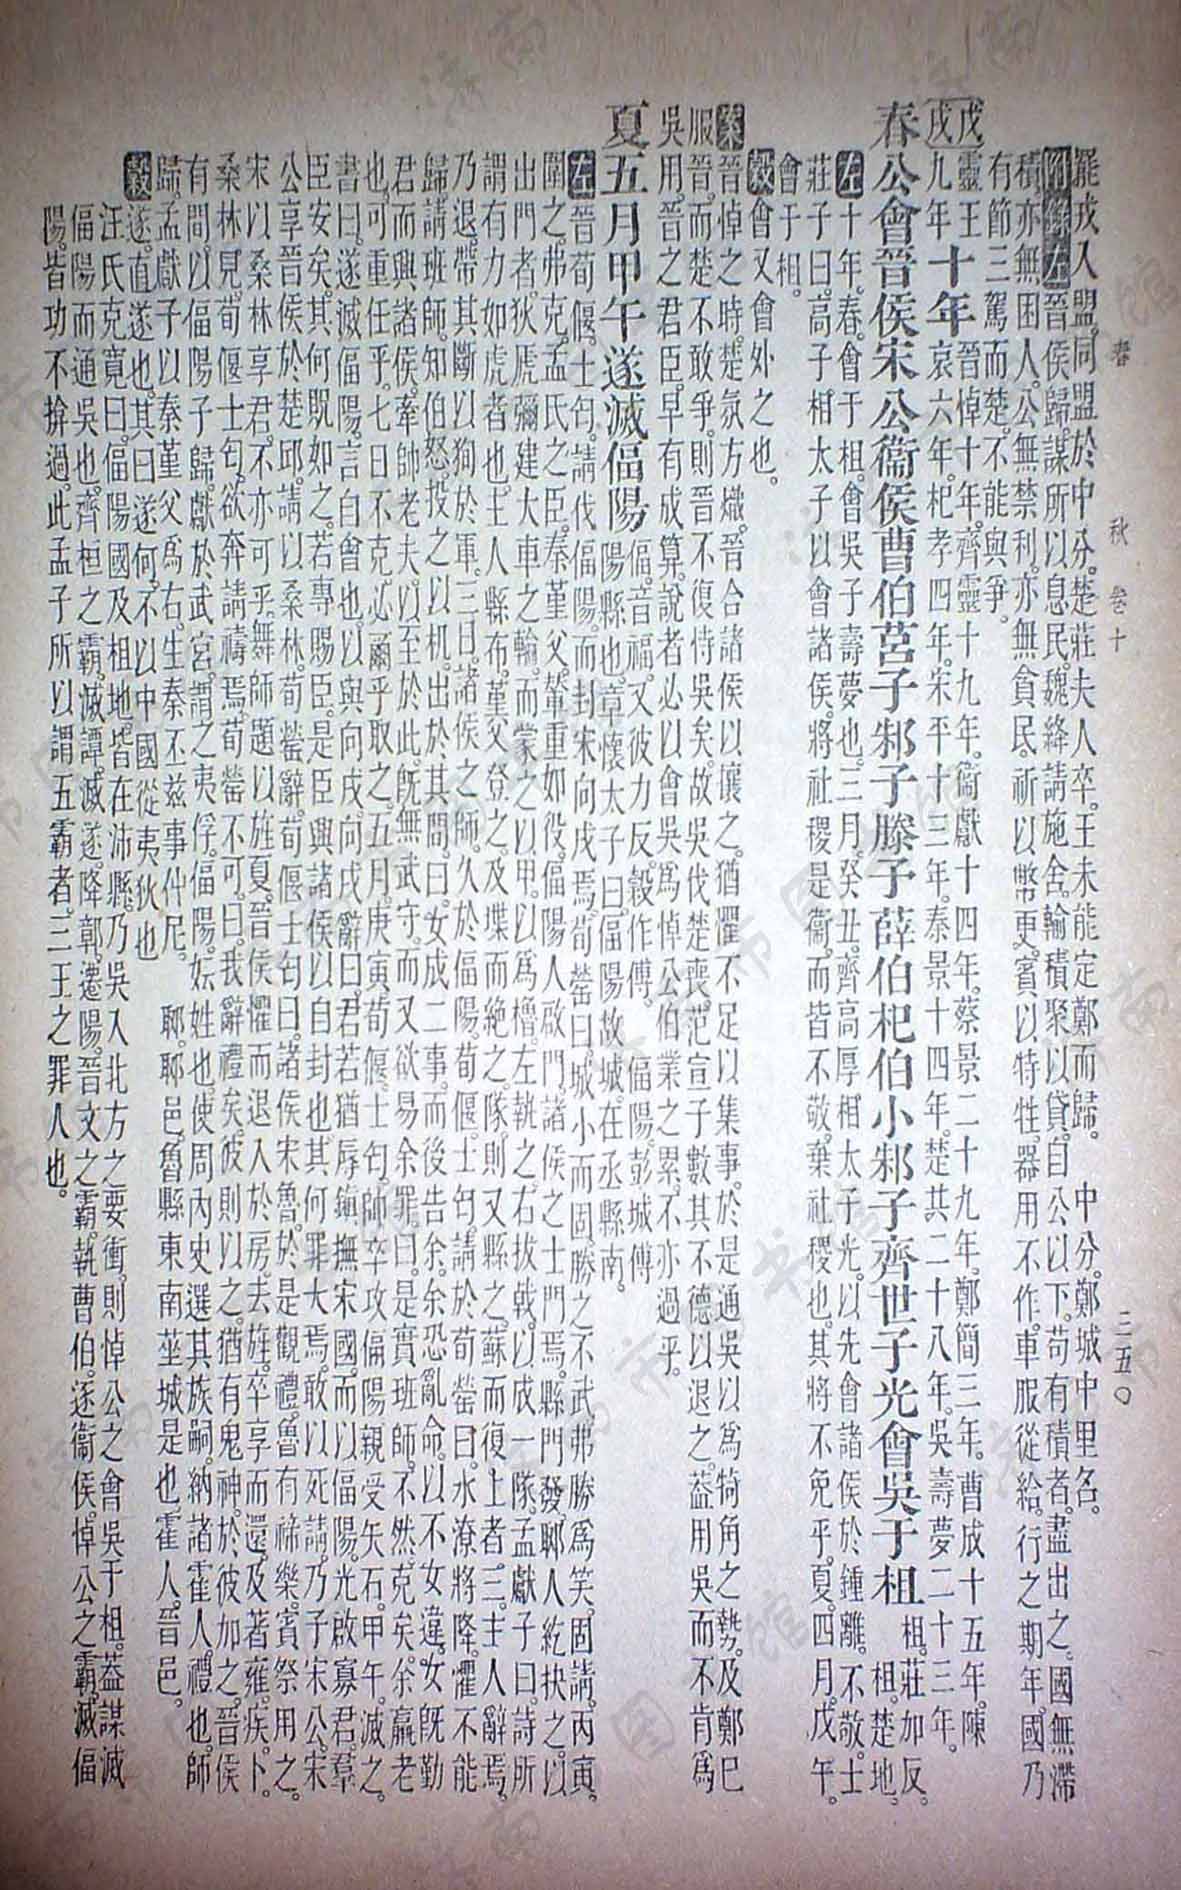 春 秋 卷十 三五〇
罷戎入盟。同盟於中分。楚莊夫人卒。王未能定鄭而歸。 中分。鄭城中里名。
附錄左晉侯歸。謀所以息民。魏絳請施舍。輸積聚以貸。自公以下。苟有積者。盡出之。國無滯
積。亦無困人。公無禁利。亦無貪民。祈以幣更。賓以特牲。器用不作。車服從給。行之期年。國乃
有節。三駕而楚不能與爭。
戊戌 靈王九年 十年 晉悼十年。齊靈十九年。衞獻十四年。蔡景二十九年。鄭簡三年。曹成十五年。陳哀六年。杞孝四年。宋平十三年。秦景十四年。楚共二十八年。吳壽夢二十三年。
春公會晉侯宋公衞侯曹伯莒子邾子滕子薛伯杞伯小邾子齊世子光會吳于柤 柤。莊加反。柤。楚地。
左十年。春。會于柤。會吳子壽夢也。三月。癸丑。齊高厚相太子光。以先會諸侯於鍾離。不敬。士
莊子曰。高子相太子以會諸侯。將社稷是衞。而皆不敬。棄社稷也。其將不免乎。夏。四月。戊午。
會于柤。
穀會又會外之也。
案晉悼之時。楚氛方熾。晉合諸侯以攘之。猶懼不足以集事。於是通吳以爲犄角之勢。及鄭已
服晉。而楚不敢爭。則晉不復恃吳矣。故吳伐楚喪。范宣子數其不德以退之。蓋用吳而不肯爲
吳用。晉之君臣。早有成算。說者必以會吳爲悼公伯業之累。不亦過乎。
夏五月甲午遂滅偪陽 偪。音福。又彼力反。穀作傅。 偪陽。彭城傅陽縣也。章懷太子曰。偪陽故城。在丞縣南。
左晉荀偃。士匄。請伐偪陽。而封宋向戌焉。荀罃曰。城小而固。勝之不武。弗勝爲笑。固請。丙寅。
圍之。弗克。孟氏之臣。秦堇父。輦重如役。偪陽人啟門。諸侯之士門焉。縣門發。郰人紇抉之。以
出門者。狄虒彌建大車之輪。而蒙之以甲。以爲櫓。左執之。右拔戟。以成一隊。孟獻子曰。詩所
謂有力如虎者也。主人縣布。堇父登之。及堞而絕之。隊。則又縣之。蘇而復上者。三。主人辭焉。
乃退。帶其斷以徇於軍。三日。諸侯之師。久於偪陽。荀偃。士匄請於荀罃曰。水潦將降。懼不能
歸。請班師。知伯怒。投之以机。出於其間。曰。女成二事。而後告余。余恐亂命。以不女違。女既勤
君而興諸侯。牽帥老夫。以至於此。旣無武守。而又欲易余罪。曰。是實班師。不然克矣。余羸老
也。可重任乎。七日不克。必爾乎取之。五月。庚寅。荀偃。士匄。帥卒攻偪陽。親受矢石。甲午。滅之。
書曰。遂滅偪陽。言自會也。以與向戌。向戌辭曰。君若猶辱鎭撫宋國。而以偪陽。光啟寡君。羣
臣安矣。其何貺如之。若專賜臣。是臣興諸侯以自封也。其何罪大焉。敢以死請。乃予宋公。宋
公享晉侯於楚邱。請以桑林。荀罃辭。荀偃士匄曰。諸侯宋魯。於是觀禮。魯有禘樂。賓祭用之。
宋以桑林享君。不亦可乎。舞師題以旌夏。晉侯懼而退入於房。去旌。卒享而還。及著雍。疾。卜。
桑林見。荀偃士匄。欲奔請禱焉。荀罃不可。曰。我辭禮矣。彼則以之。猶有鬼神。於彼加之。晉侯
有間。以偪陽子歸。獻於武宮。謂之夷俘。偪陽。妘姓也。使周內史選其族嗣。納諸霍人。禮也。師
歸。孟獻子以秦堇父爲右。生秦丕茲。事仲尼。 郰。郰邑。魯縣東南莝城是也。霍人。晉邑。
穀遂。直遂也。其曰遂何。不以中國從夷狄也
汪氏克寬曰。偪陽國及柤地。皆在沛縣。乃吳入北方之要衝。則悼公之會吳于柤。蓋謀滅
偪陽而通吳也。齊桓之霸。滅譚。滅遂。降鄣。遷陽。晉文之霸。執曹伯。逐衞侯。悼公之霸。滅偪
陽。皆功不揜過。此孟子所以謂五霸者。三王之罪人也。